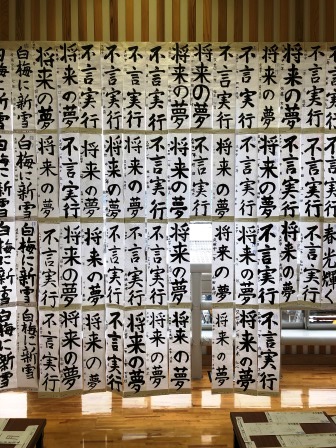 不言実行
不言実行
将来の夢
将来の夢
不言実行
不言実行
将来の夢
将来の夢
不言実行
不言実行
不言実行
不言実行
将来の夢
将来の夢
白梅に新雪
白梅に新雪
将来の夢
不言実行
不言実行
将来の夢
不言実行
将来の夢
不言実行
将来の夢
不言実行
将来の夢
将来の夢
将来の夢
不言実行
将来の夢
白梅に新雪
白梅に新雪
春光輝
不言実行
将来の夢
不言実行
不言実行
将来の夢
将来の夢
不言実行
不言実行
不言実行
将来の夢
将来の夢
不言実行
白梅に新雪
白梅に新雪
不言実行
不言実行
将来の夢
将来の夢
将来の夢
不言実行
不言実行
将来の夢
将来の夢
不言実行
白梅に新雪
白梅に新雪